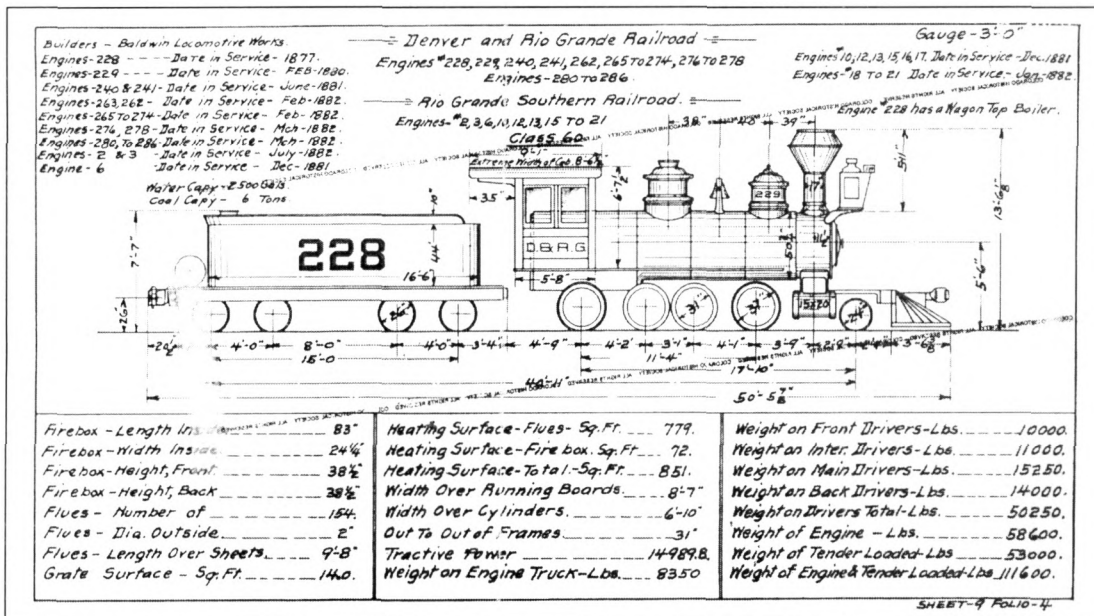 Builders - Baldwin Locomotive Works.
Engines-228 ---- Date in Service - 1877.
Engines-229 --- Date in Service - FEB-1880.
Engines-240 & 241 - Date in Service - June-1881.
Engines-263,262 - Date in Service - Feb-1882.
Engines-265 To 274 - Date in Service - Feb-1882.
Engines-276, 278 - Date in Service - Mch-1882.
Engines-280, To 286 - Date in Service - Mch-1882.
Engines- 2 & 3 - Date in Service - July-1882.
Engine - 6 Date in Service - Dec-1881
Water Capy - 2500 Gals.
Coal Capy - 6 Tons.
Denver and Rio Grande Railroad
Engines #228, 229, 240, 241, 262, 265 To 274, 276 To 278
Engines-280 To 286.
Rio Grande Southern Railroad.
Engines-#2,3,6,10,12,13,15 To 21
Class 60
Extreme Width of Cab 8-6
Gauge-3'-0"
Engines #10,12,13,15,16,17. Date in Service-Dec.1881
Engines-#18 To 21 Date in Service-Jan-1882.
Engine 228 has a Wagon Top Boiler.
38" 40" 39"
35" 6'-7½" 229 17" 5'-1" 13'-6⅛"
10" 44" 7'-7" 26" 228 16'-6" D.& R.G. 5'-8" 50½" 11½" 5'-6"
26" 37" 37" 15x20 24"
20½" 4'-0" 8'-0" 4'-0" 3'-4" 4'-9" 4'-2" 3'-1" 4'-1" 3'-9" 3'-6⅜"
15'-0 11'-4"
17'-10"
40'-11"
50'-5⅞"
COLORADO HISTORICAL SOCIETY ALL RIGHTS RESERVED
Firebox - Length Inside 83"
Firebox - Width Inside 24¼"
Firebox - Height, Front 38½"
Firebox - Height, Back 38½"
Flues - Number of 154.
Flues - Dia. Outside 2"
Flues - Length Over Sheets 9'-8"
Grate Surface - Sq. Ft. 14.0.
Heating Surface - Flues - Sq. Ft. 779.
Heating Surface - Fire box. Sq. Ft 72.
Heating Surface - Total - Sq. Ft. 851.
Width Over Running Boards. 8'-7"
Width Over Cylinders. 6'-10"
Out To Out of Frames. 31"
Tractive Power 14989.8.
Weight on Engine Truck - Lbs. 8350
Weight on Front Drivers - Lbs. 10000.
Weight on Inter. Drivers - Lbs. 11000.
Weight on Main Drivers - Lbs. 15250.
Weight on Back Drivers - Lbs. 14000.
Weight on Drivers Total - Lbs. 50250.
Weight of Engine - Lbs. 58600.
Weight of Tender Loaded - Lbs 53000.
Weight of Engine & Tender Loaded - Lbs 111600.
SHEET-9 FOLIO-4